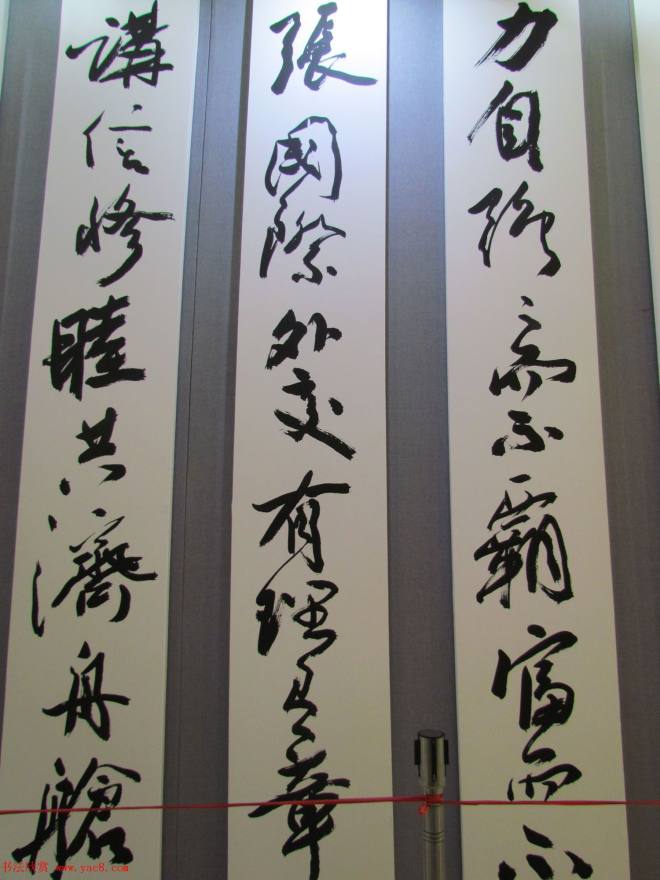 力自強〻而不霸富而不
張國際外交有理有章
講信修睦共濟舟艙
书法欣赏 www.yac8.com